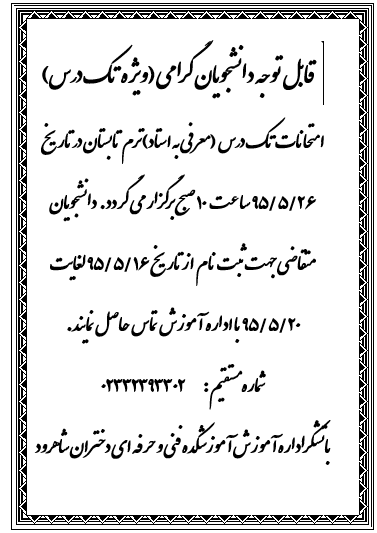 قابل توجه دانشجویان گرامی (ویژه تک درس)
امتحانات تک درس (معرفی به استاد) ترم تابستان در تاریخ
۹۵/۵/۲۶ ساعت ۱۰ صبح برگزار می گردد. دانشجویان
متقاضی جهت ثبت نام از تاریخ ۹۵/۵/۱۶ لغایت
۹۵/۵/۲۰ با اداره آموزش تماس حاصل نمایند.
شماره مستقیم : ۰۲۳۳۲۳۹۳۳۰۲
باتشکر اداره آموزش آموزشکده فنی و حرفه ای دختران شاهرود